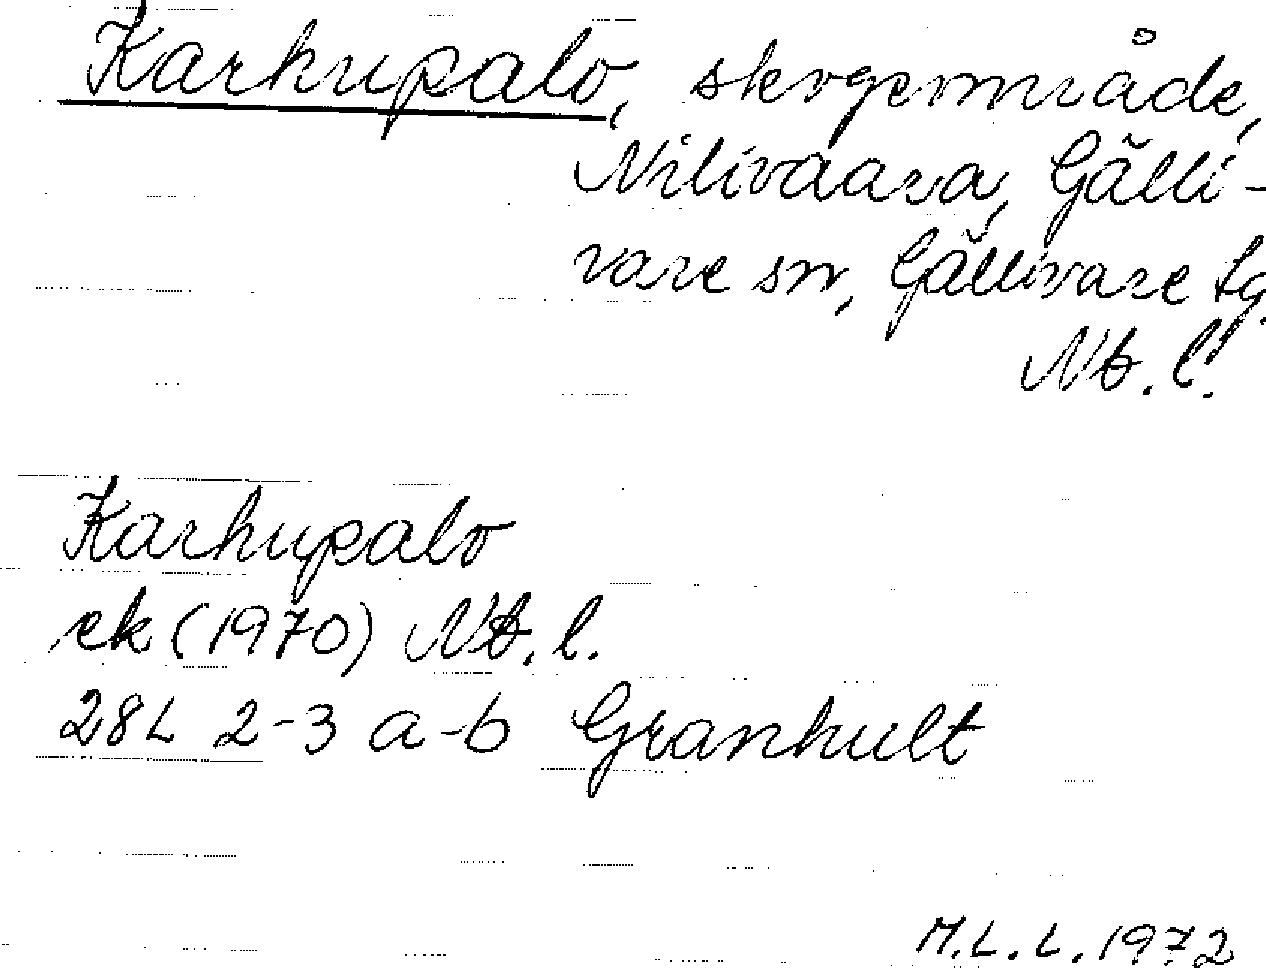 Karhupalo, skogsområde,
Nilivaara, Gälli-
vare sn, Gällivare tg.
Nb. l.
Karhupalo
ek (1970) Nb. l.
28L 2-3 a-b Granhult
M.L.L. 1972